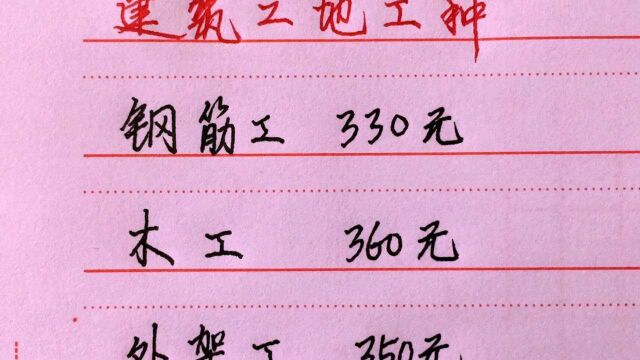 建筑工地工种
钢筋工 330元
木工 360元
外架工 350元